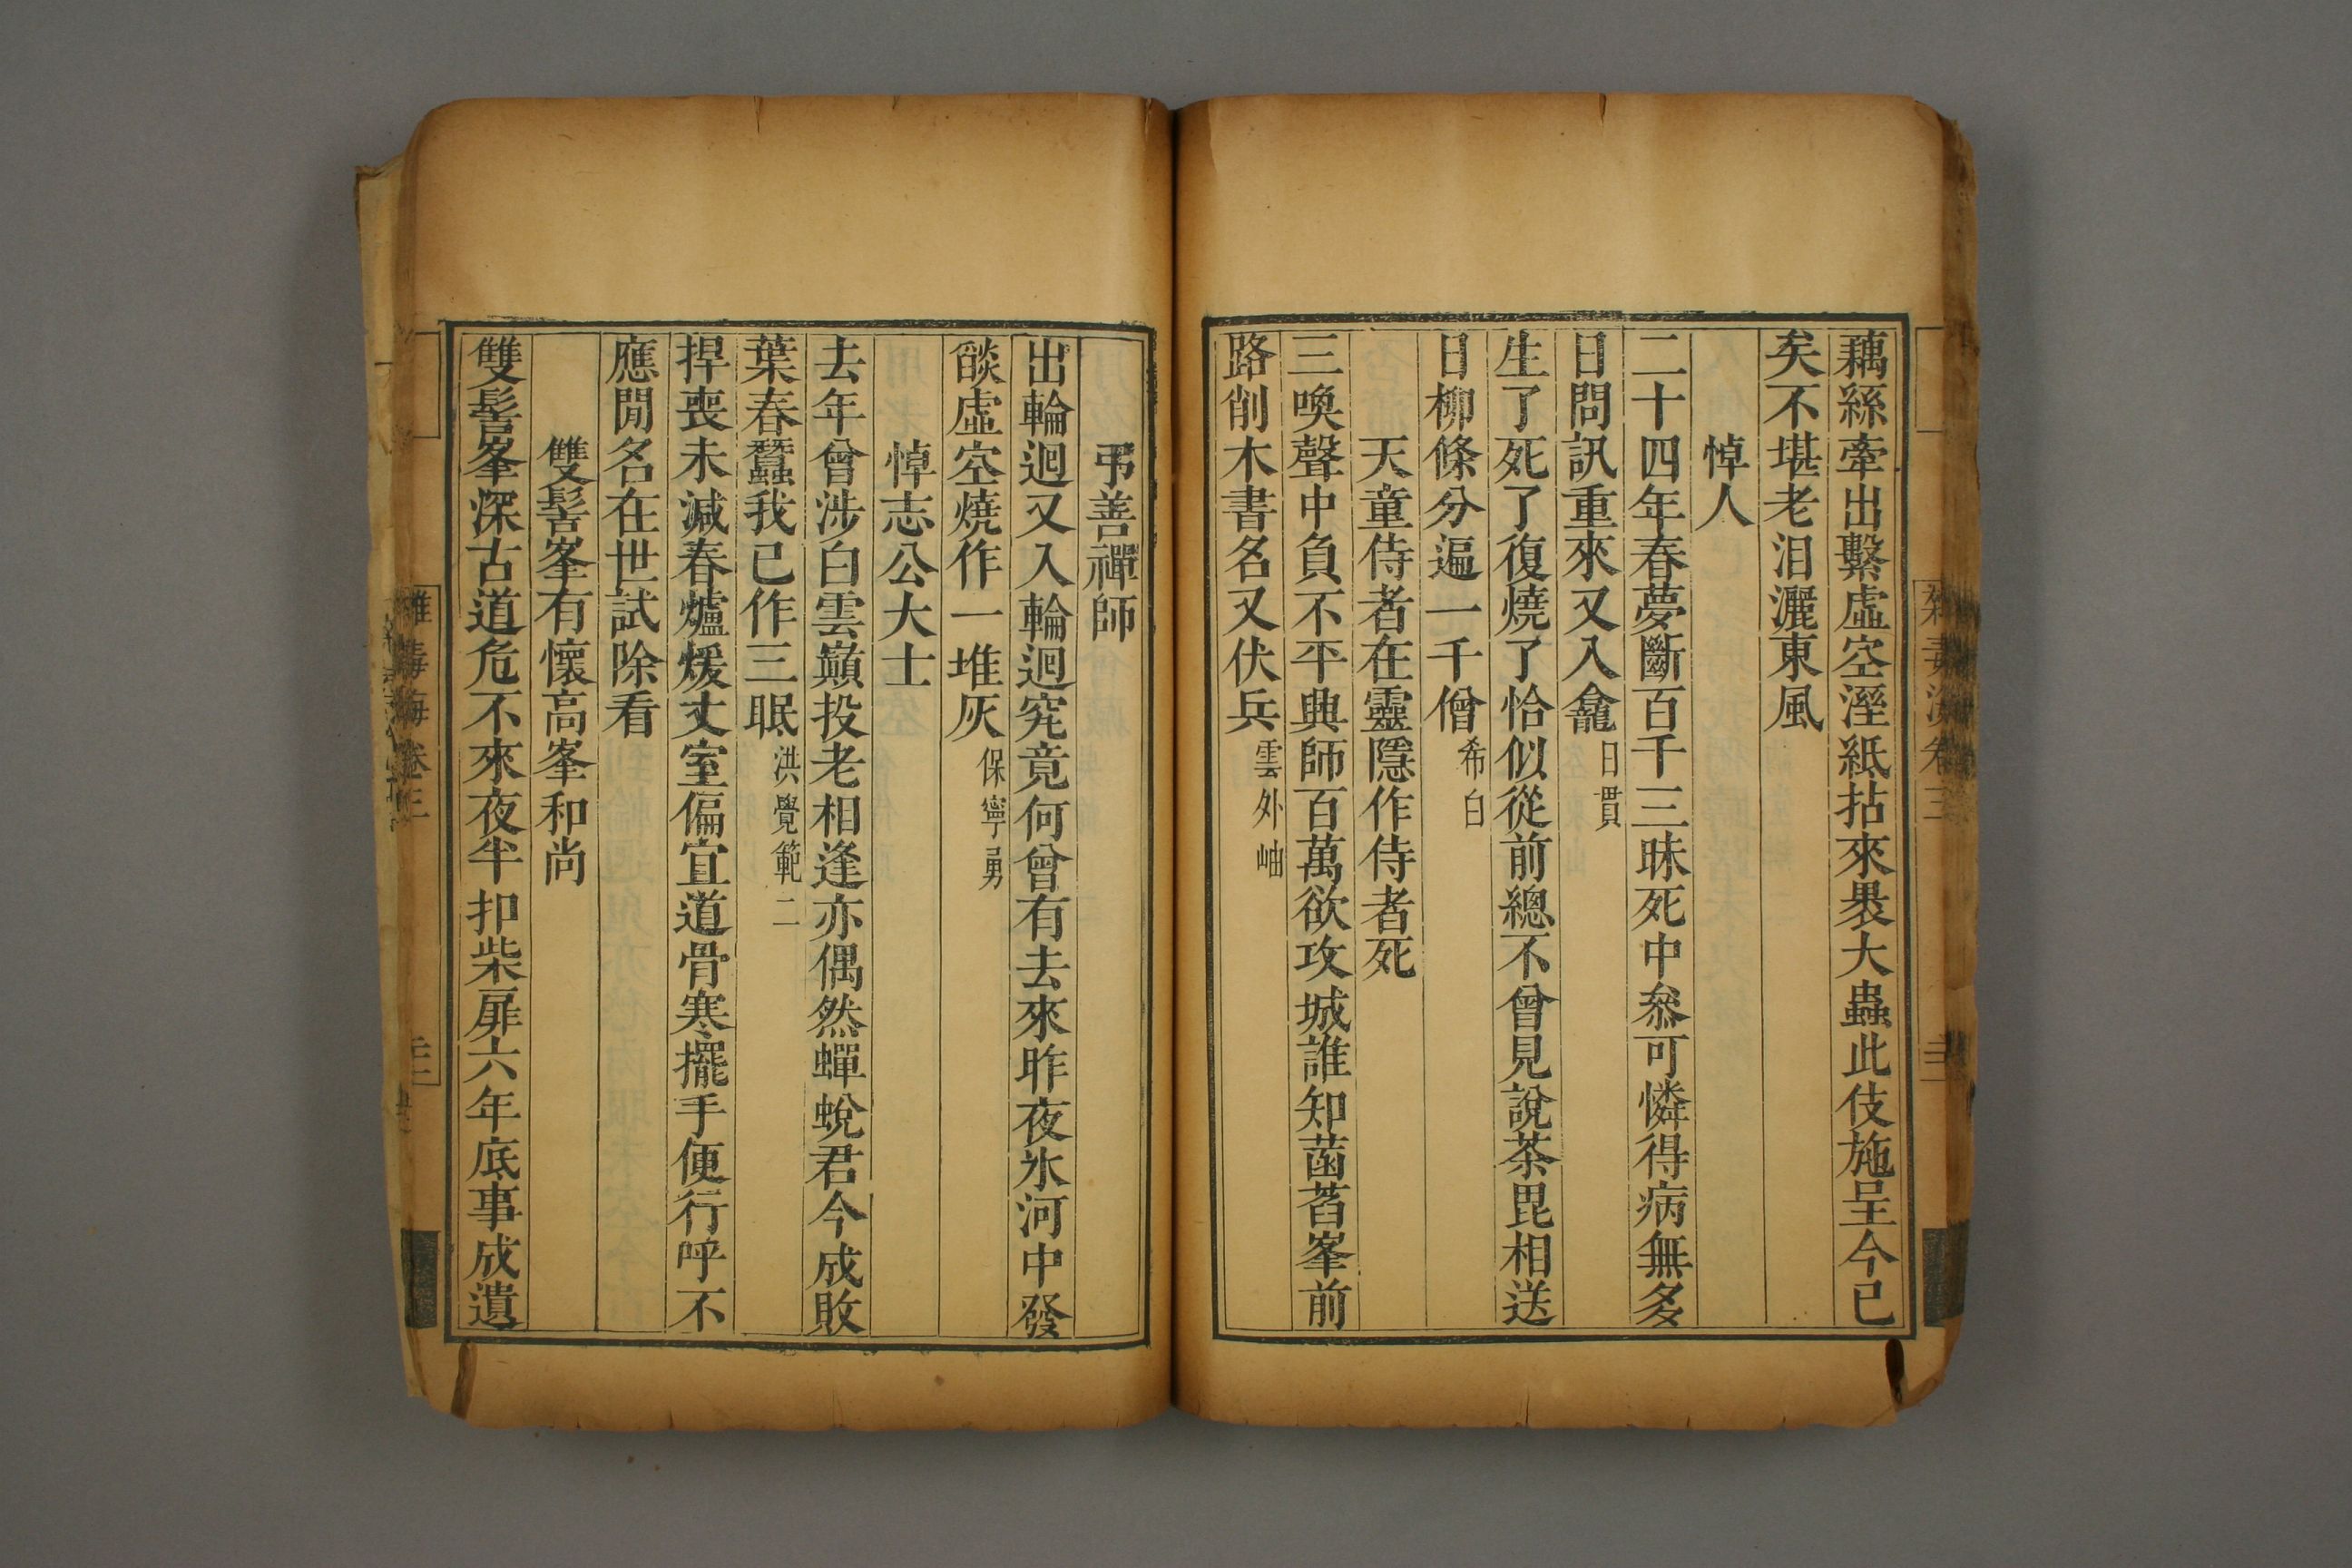 藕絲牽出繫虛空溼紙拈來褁大蟲此伎施呈今已
矣不堪老泪灑東風
悼人
二十四年春夢斷百千三昧死中叅可憐得病無多
日問訊重來又入龕 日貫
生了死了復燒了恰似從前總不曾見說茶毘相送
日柳條分遍一千僧 希白
天童侍者在靈隱作侍者死
三喚聲中負不平興師百萬欲攻城誰知菡萏峯前
路削木書名又伏兵 雲外岫
弔善禪師
出輪迴又入輪迴究竟何曾有去來昨夜氷河中發
燄虛空燒作一堆灰 保寧勇
悼志公大士
去年曾涉白雲巔投老相逢亦偶然蟬蛻君今成敗
葉春蠶我已作三眠 洪覺範 二
捍喪未減春爐煖丈室偏宜道骨寒擺手便行呼不
應閒名在世試除看
雙髻峯有懷高峯和尚
雙髻峯深古道危不來夜半扣柴扉六年底事成遺
雜毒海卷三